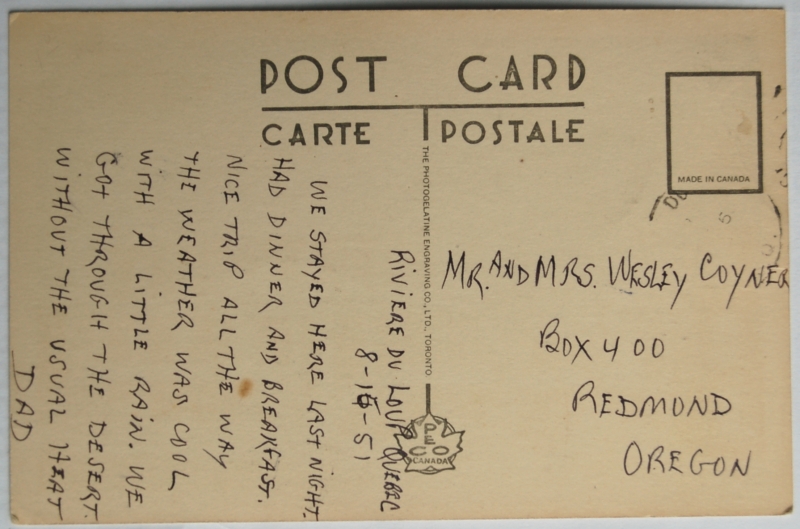 POST CARD
CARTE POSTALE
MADE IN CANADA
THE PHOTOGELATINE ENGRAVING CO., LTD., TORONTO
PECO
CANADA
RIVIERE DU LOUP QUEBEC
8-15-51
WE STAYED HERE LAST NIGHT.
HAD DINNER AND BREAKFAST.
NICE TRIP ALL THE WAY
THE WEATHER WAS COOL
WITH A LITTLE RAIN. WE
GOT THROUGH THE DESERT.
WITHOUT THE USUAL HEAT
DAD
MR. AND MRS. WESLEY COYNER
BOX 400
REDMOND
OREGON